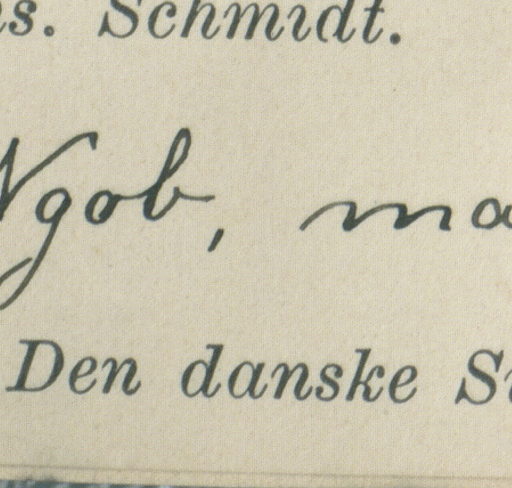 s. Schmidt.
Ngob, ma
Den danske S